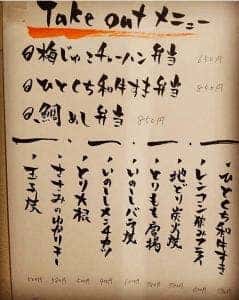 Take out メニュー
梅じゃこチャーハン弁当 650円
ひとくち和牛すき弁当 850円
鯛めし弁当 850円
・ひとくち和牛すき
・レンコン挟みフライ
・地どり炭火焼
・とりもも唐揚
・いのししバラ焼
・いのししメンチカツ
・とり大根
・ささみのゆかりフライ
・玉子焼